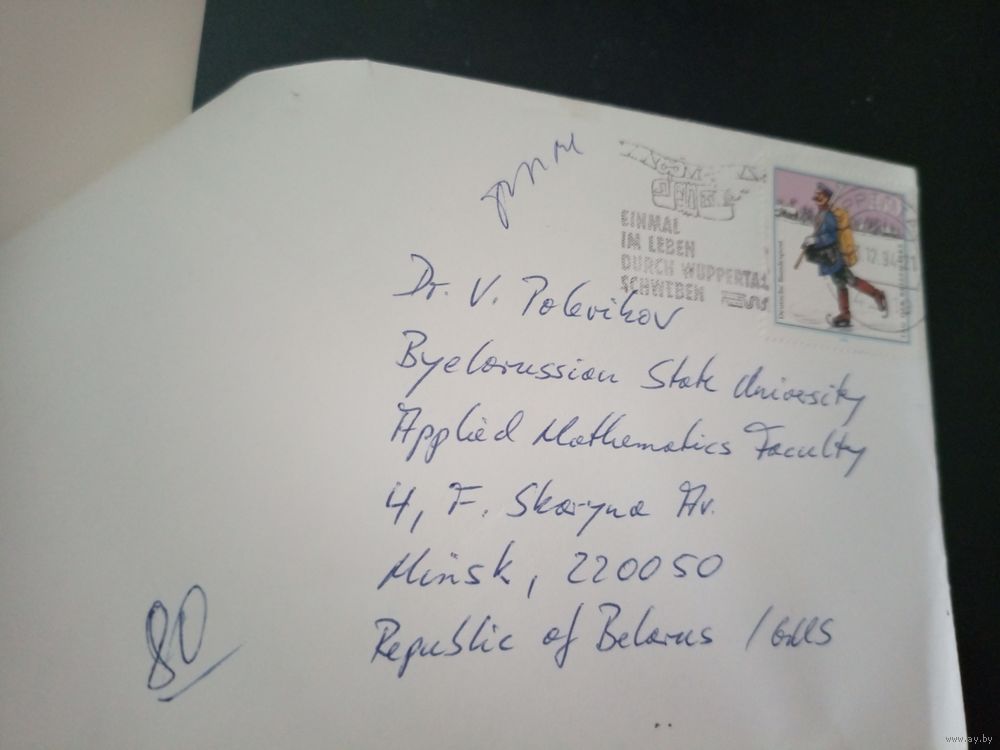 EINMAL
IM LEBEN
DURCH WUPPERTAL
SCHWEBEN
Deutsche Bundespost
12.94
Dr. V. Polevikov
Byelorussian State University
Applied Mathematics Faculty
4, F. Skaryna Av.
Minsk, 220050
Republic of Belarus / GUS
80
www.ay.by